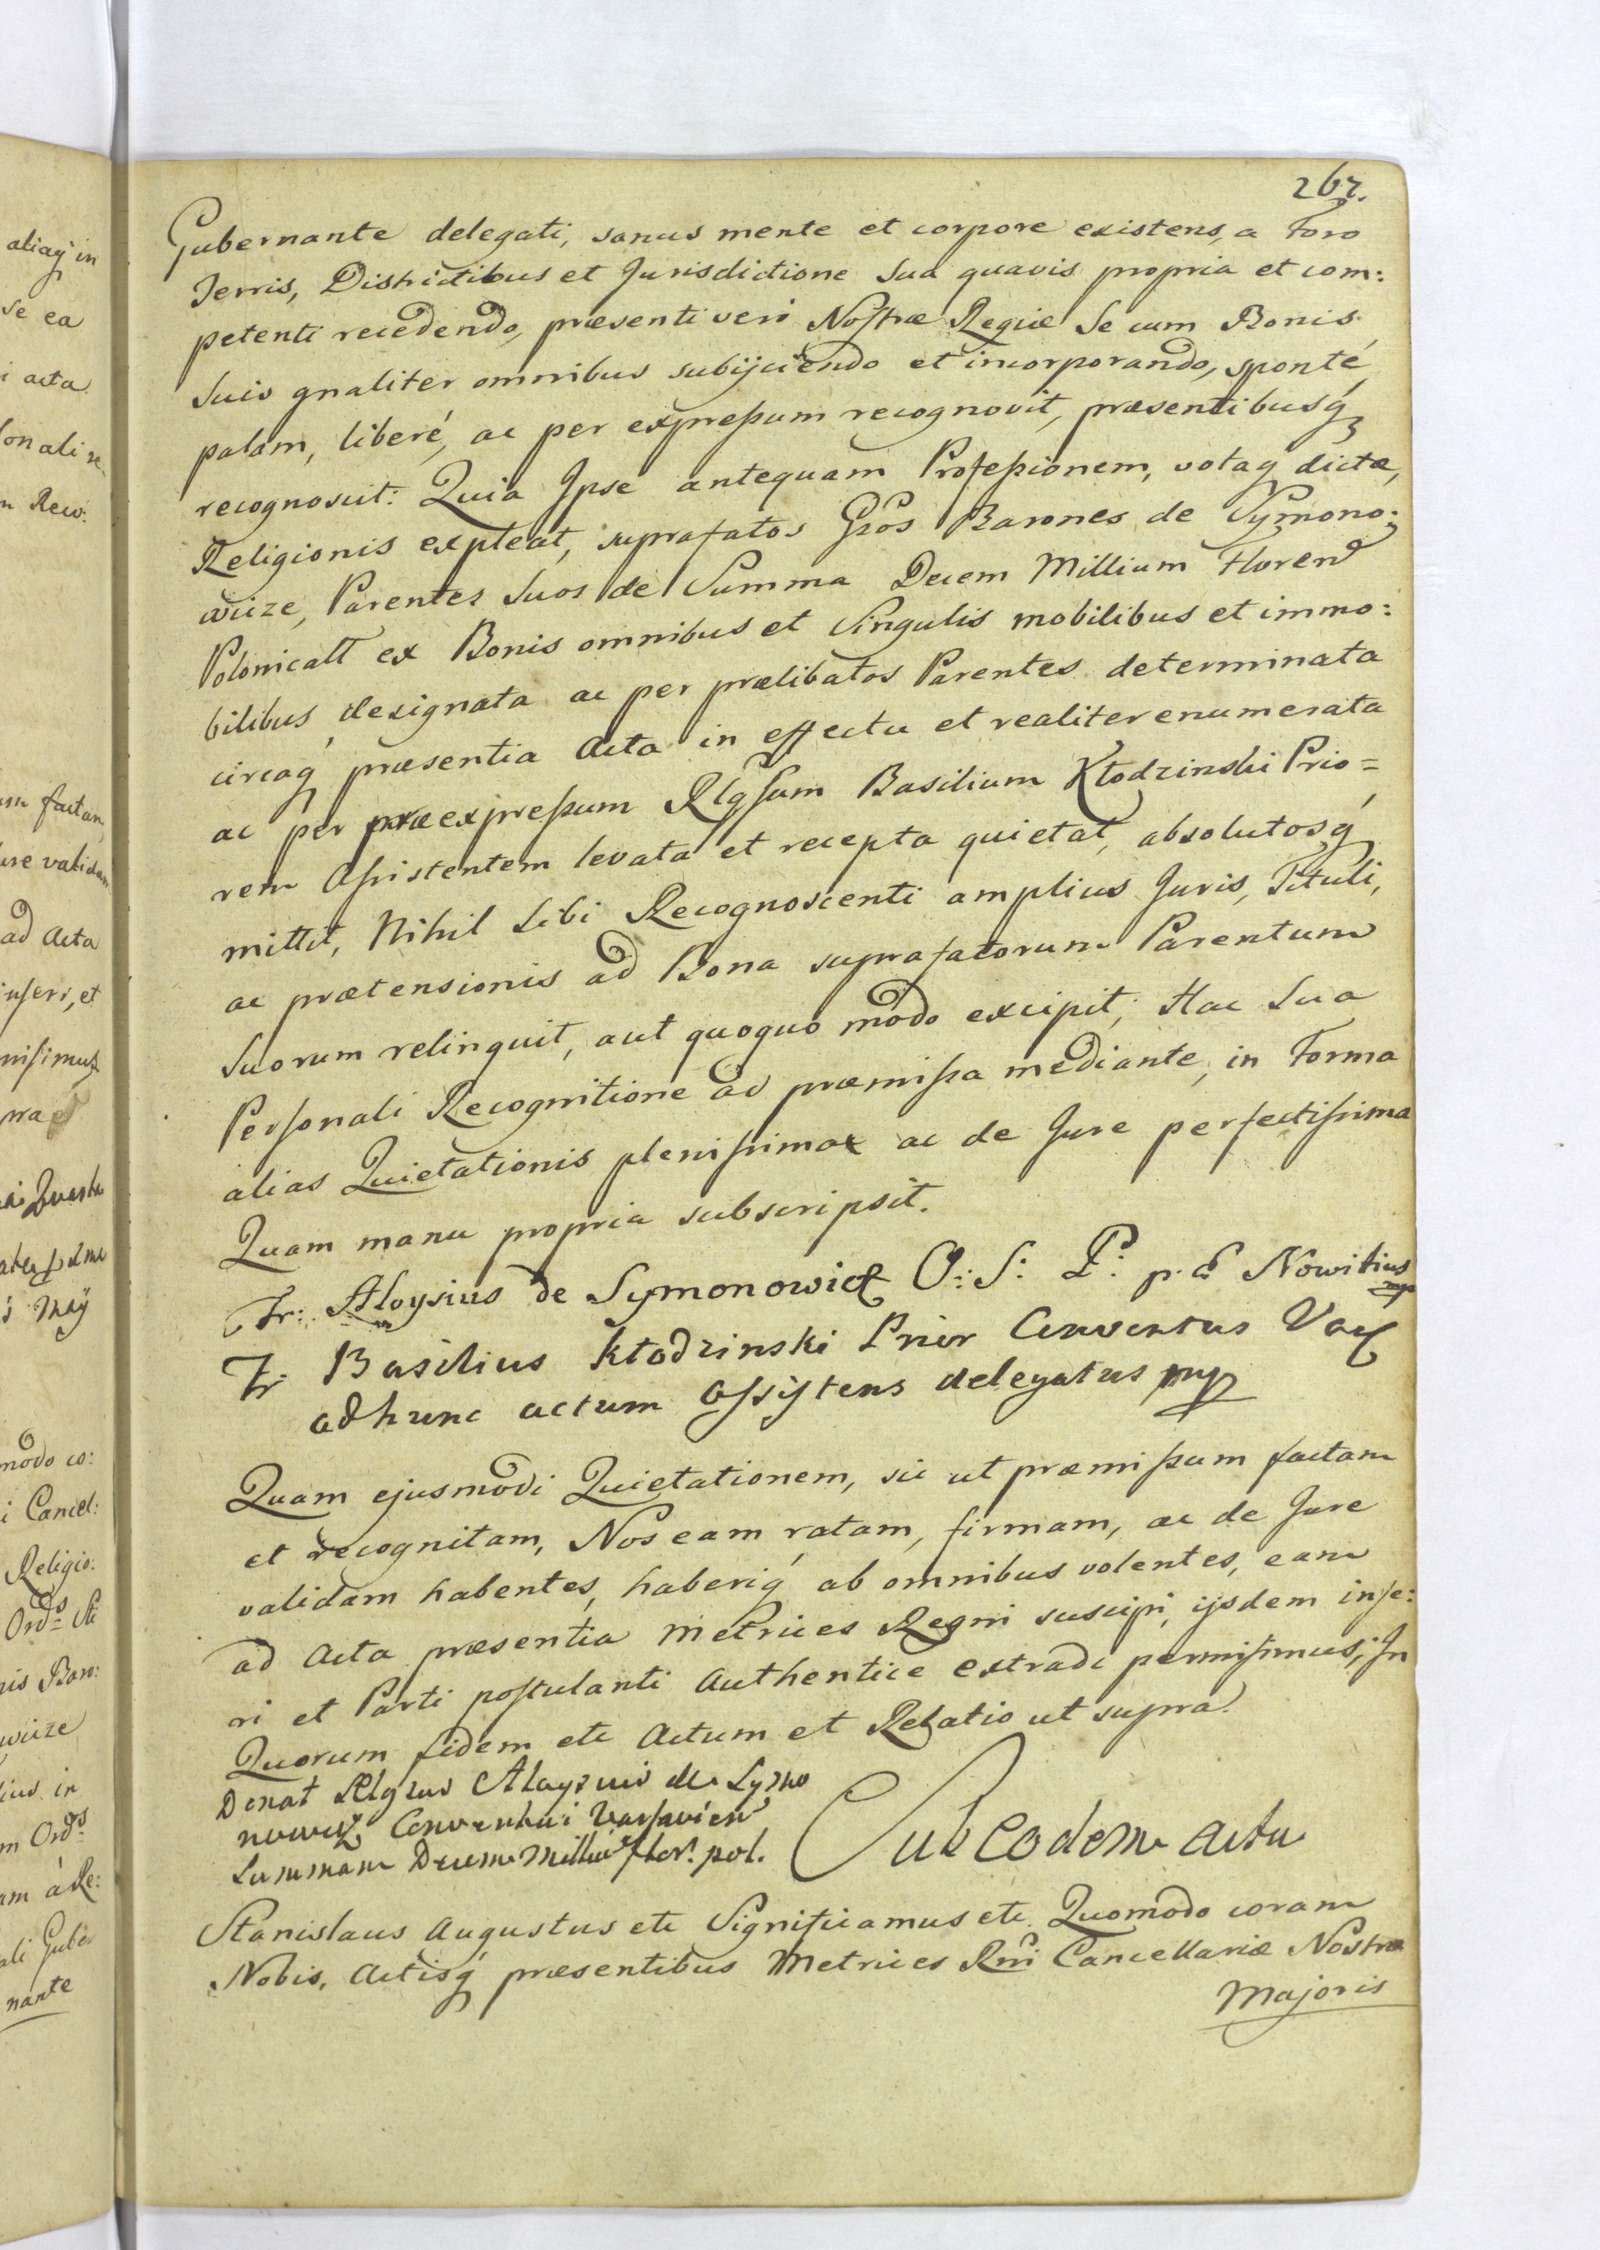 267.
Gubernante delegati, sanus mente et corpore existens, a Foro
Terris, Districtibus et Jurisdictione Sua quavis propria et com:
petenti recedendo, præsenti vero Nostræ Regiæ Se cum Bonis
Suis gnaliter omnibus subijciendo et incorporando, sponté,
palam, liberé, ac per expreßum recognovit, præsentibusq́
recognoscit: Quia Ipse antequam Profeßionem, votaq́ dictæ,
Religionis expleat, suprafatos Gsos Barones de Symono:
wicze, Parentes Suos de Summa Decem Millium Floren
Polonicall ex Bonis omnibus et Singulis mobilibus et immo:
bilibus, designata ac per prælibatos Parentes determinata
circaq́ præsentia Acta in effectu et realiter enumerata
ac per præexpreßum Rlgsum Basilium Kłodzinski Prio=
rem Aßistentem levata et recepta quietat, absolutosq́
mittit, Nihil Sibi Recognoscenti amplius Juris, Tituli,
ac prætensionis ad Bona suprafatorum Parentum
Suorum relinquit, aut quoquo modo excipit; Hac Sua
Personali Recognitione ad præmißa mediante, in Forma
alias Quietationis plenißimæ ac de Jure perfectißima
Quam manu propria subscripsit.
Fr: Aloysius de Symonowicz O: S: P: p. E Nowitius mp
Fr Basilius Kłodzinski Prior Conventus Var
adhunc actum aßistens delegatus mp
Quam ejusmodi Quietationem, sic ut præmißum factam
et recognitam, Nos eam ratam, firmam, ac de Jure
validam habentes, haberiq́ ab omnibus volentes, eam
ad Acta præsentia Metrices Regni suscipi, ijsdem inse:
ri et Parti postulanti Authentice extradi permisimus; In
Quorum fidem etc Actum et Relatio ut supra.
Donat Rlgsus Aloysius de Symo
nowicz Conventui Varsavien
Summam Decem Milliu flor. pol.
Sub eodem actu
Stanislaus Augustus etc Significamus etc. Quomodo coram
Nobis, Actisq́ præsentibus Metrices Rni Cancellariæ Nostræ
Majoris
aliaq́ in
se ea
i acta
sonali re
Reco:
factam
ure validam
ad Acta
inseri, et
misimus
May
modo co:
i Cancel:
Religio:
Ords Sti
nis Baro:
wicze
ius in
m Ords
am à Re:
ali Gube
nante